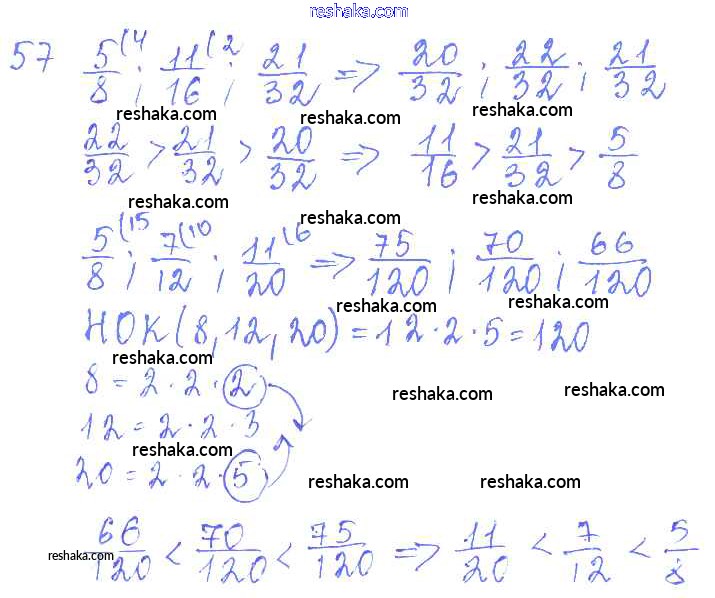 reshaka.com
57 5/8 (4 ; 11/16 (2 ; 21/32 => 20/32 ; 22/32 ; 21/32
reshaka.com reshaka.com reshaka.com
22/32 > 21/32 > 20/32 => 11/16 > 21/32 > 5/8
reshaka.com reshaka.com reshaka.com
5/8 (15 ; 7/12 (10 ; 11/20 (6 => 75/120 ; 70/120 ; 66/120
reshaka.com reshaka.com
НОК(8,12,20) = 12·2·5 = 120
reshaka.com reshaka.com reshaka.com
8 = 2·2·2
12 = 2·2·3
reshaka.com
20 = 2·2·5
reshaka.com reshaka.com
66/120 < 70/120 < 75/120 => 11/20 < 7/12 < 5/8
reshaka.com